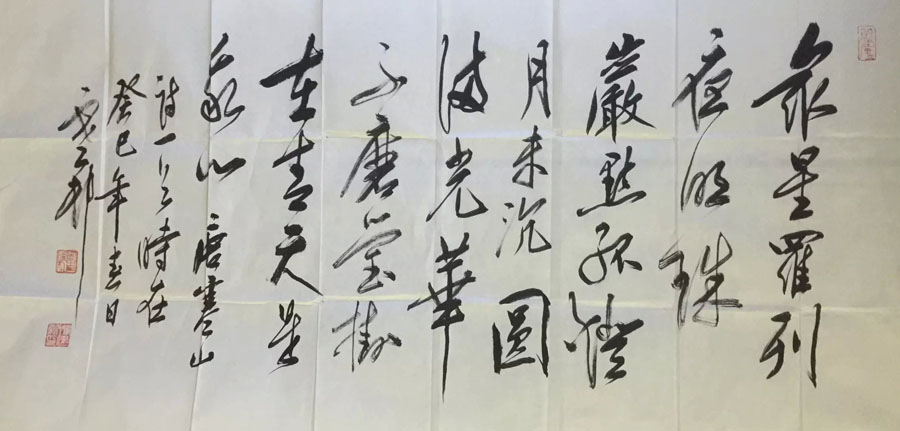 衆星羅列
夜明珠
巖點孤燈
月未沉圓
滿光華
不磨瑩掛
在青天是
我心 唐寒山
詩一首時在
癸巳年春日